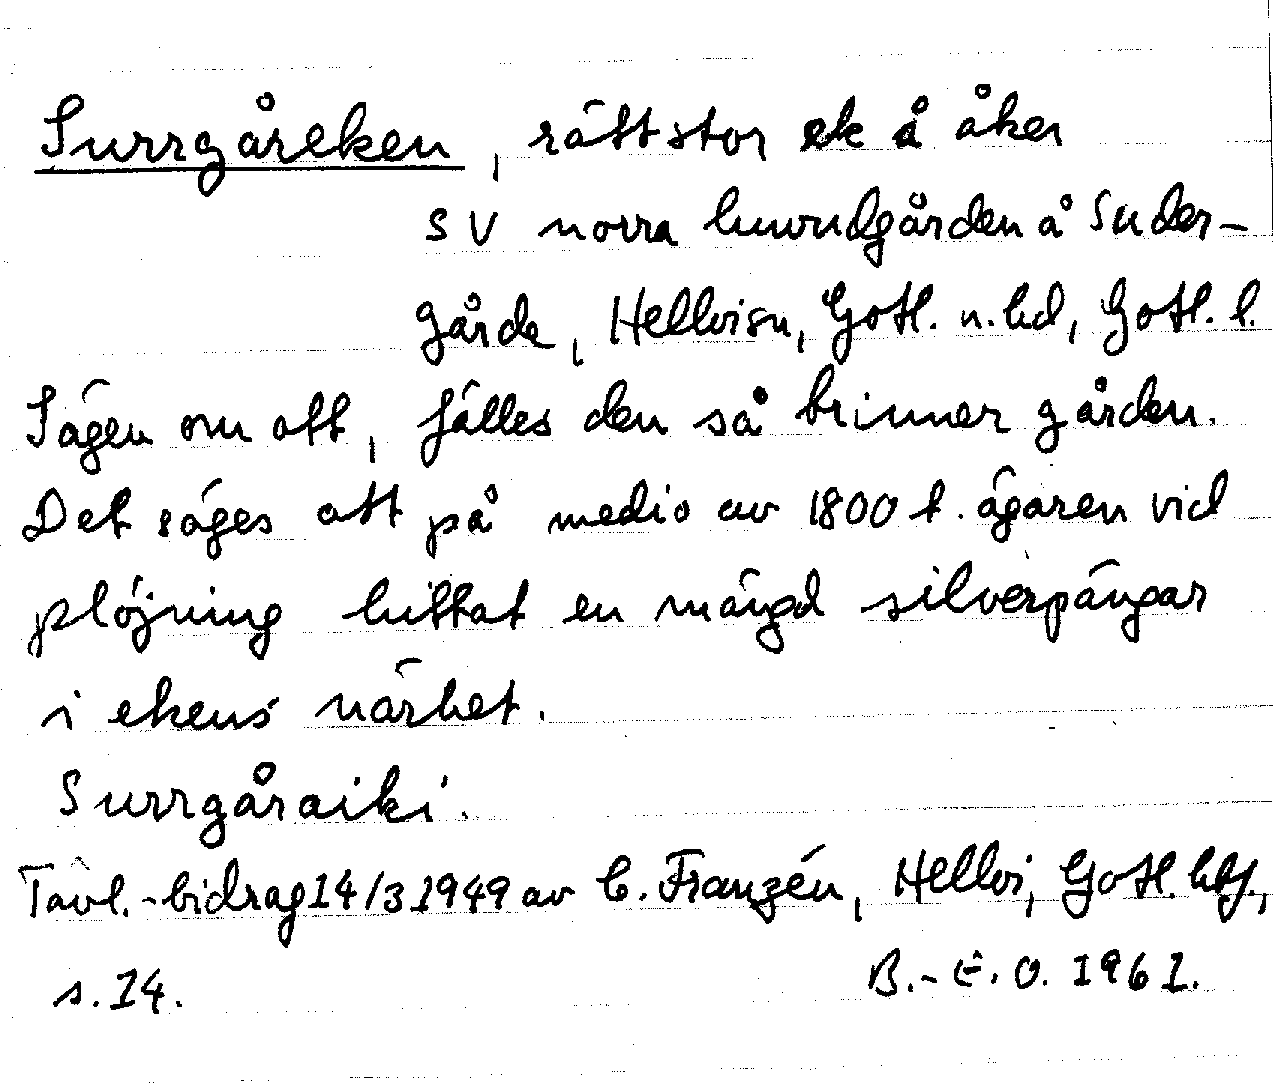 Surrgåreken, rätt stor ek å åker
SV norra huvudgården å Suder-
gårde, Hellvi sn, Gotl. n. hd, Gotl. l.
Sägen om att, fälles den så brinner gården.
Det säges att på medio av 1800 t. ägaren vid
plöjning hittat en mängd silverpängar
i ekens närhet.
Surrgåraiki.
Tävl.-bidrag 14/3 1949 av C. Franzén, Hellvi, Gotl.
s. 14.
B.-E. O. 1961.